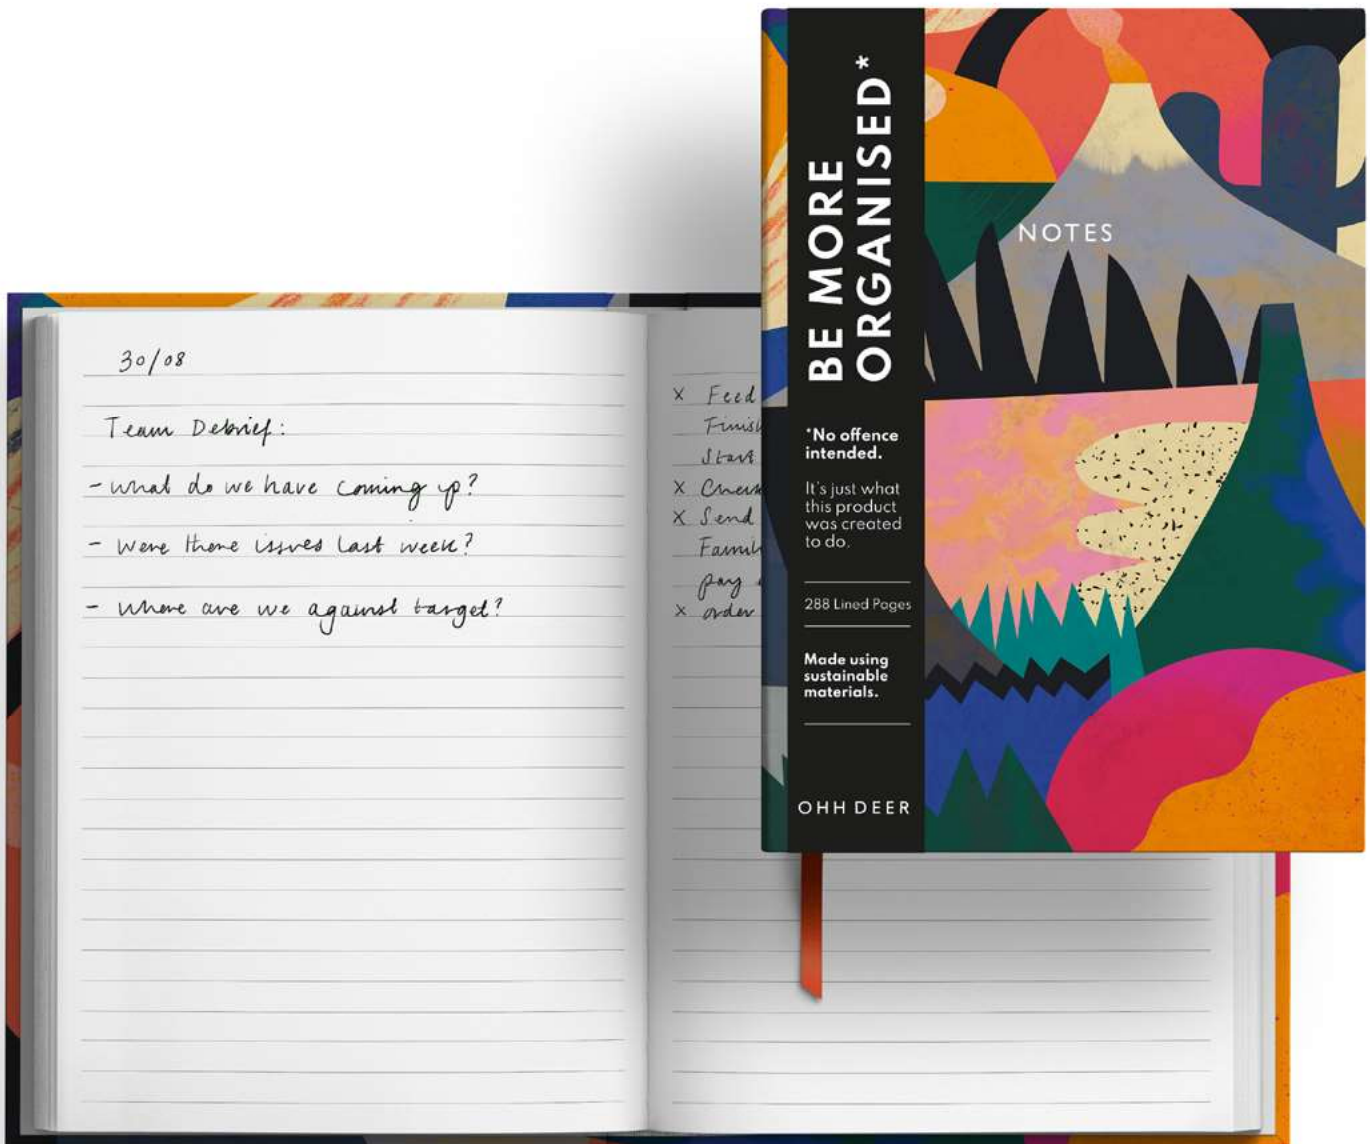 30/08
Team Debrief:
- what do we have coming up?
- Were there issues last week?
- where are we against target?
x Feed
Finish
Start
x
x Send
pay
x order
BE MORE
ORGANISED*
*No offence
intended.
It's just what
this product
was created
to do.
288 Lined Pages
Made using
sustainable
materials.
OHH DEER
NOTES